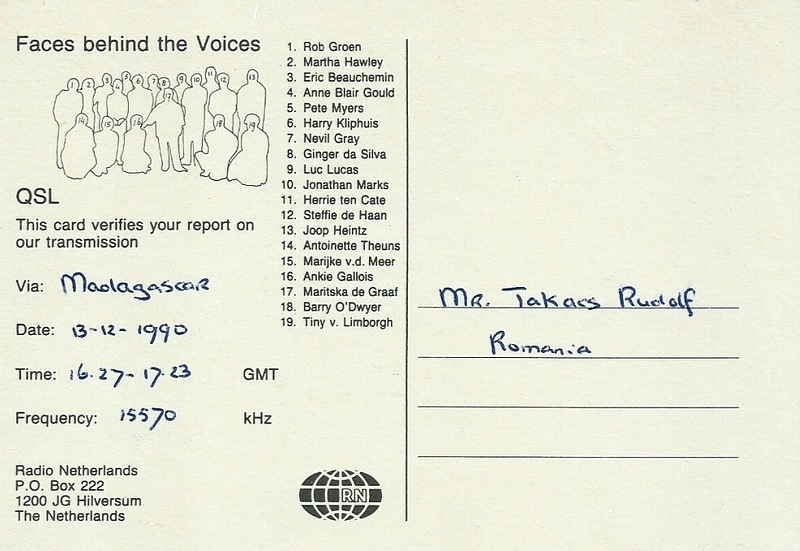 Faces behind the Voices
1 2 3 4 5 6 7 8 9 10 11 12 13
14 15 16 17 18 19
1. Rob Groen
2. Martha Hawley
3. Eric Beauchemin
4. Anne Blair Gould
5. Pete Myers
6. Harry Kliphuis
7. Nevil Gray
8. Ginger da Silva
9. Luc Lucas
10. Jonathan Marks
11. Herrie ten Cate
12. Steffie de Haan
13. Joop Heintz
14. Antoinette Theuns
15. Marijke v.d. Meer
16. Ankie Gallois
17. Maritska de Graaf
18. Barry O'Dwyer
19. Tiny v. Limborgh
QSL
This card verifies your report on
our transmission
Via: Madagascar
Date: 13-12-1990
Time: 16.27-17.23 GMT
Frequency: 15570 kHz
Radio Netherlands
P.O. Box 222
1200 JG Hilversum
The Netherlands
RN
Mr. Takacs Rudolf
Romania